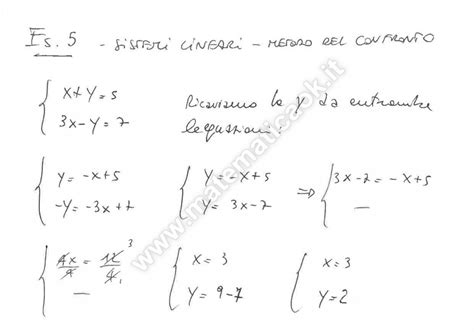 Es. 5 - SISTEMI LINEARI - METODO DEL CONFRONTO
x+y=5
3x-y=7
Ricaviamo la y da entrambe
le equazioni:
y=-x+5
-y=-3x+7
y=-x+5
y=3x-7
⇒ 3x-7=-x+5
—
4x/4 = 12/4 3 1
—
x=3
y=9-7
x=3
y=2
www.matematicaok.it